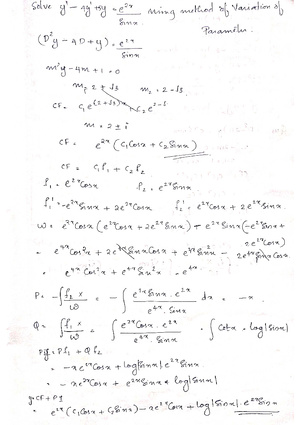 Solve y' - 4y' + 5y = e^2x / Sinx using method of Variation of
Parameter.
(D²y - 4D + y) = e^2x / Sinx
m²y - 4m + 1 = 0
m₁ 2 + √3 m₂ = 2 - √3
CF = C₁ e^(2+√3)x + C₂ e^2-√
m = 2 ± i
CF = e^2x (C₁ Cosx + C₂ Sinx)
CF = C₁f₁ + C₂f₂
f₁ = e^2x Cosx f₂ = e^2x Sinx
f₁' = -e^2x Sinx + 2e^2x Cosx f₂' = e^2x Cosx + 2e^2x Sinx
W = e^2x Cosx (e^2x Cosx + 2e^2x Sinx) - e^2x Sinx (-e^2x Sinx +
2e^2x Cosx)
= e^4x Cos²x + 2e^4x Sinx Cosx + e^4x Sin²x - 2e^4x Sinx Cosx
= e^4x Cos²x + e^4x Sin²x = e^4x
P = -∫ f₂ x / W = -∫ e^2x Sinx . e^2x / e^4x . Sinx dx = -x
Q = ∫ f₁ x / W = ∫ e^2x Cosx . e^2x / e^4x Sinx = ∫ Cotx = log|Sinx|
PI = Pf₁ + Qf₂
= -xe^2x Cosx + log|Sinx| e^2x Sinx
= -xe^2x Cosx + e^2x Sinx log|Sinx|
y = CF + PI
= e^2x (C₁ Cosx + C₂ Sinx) - xe^2x Cosx + log|Sinx| . e^2x Sinx